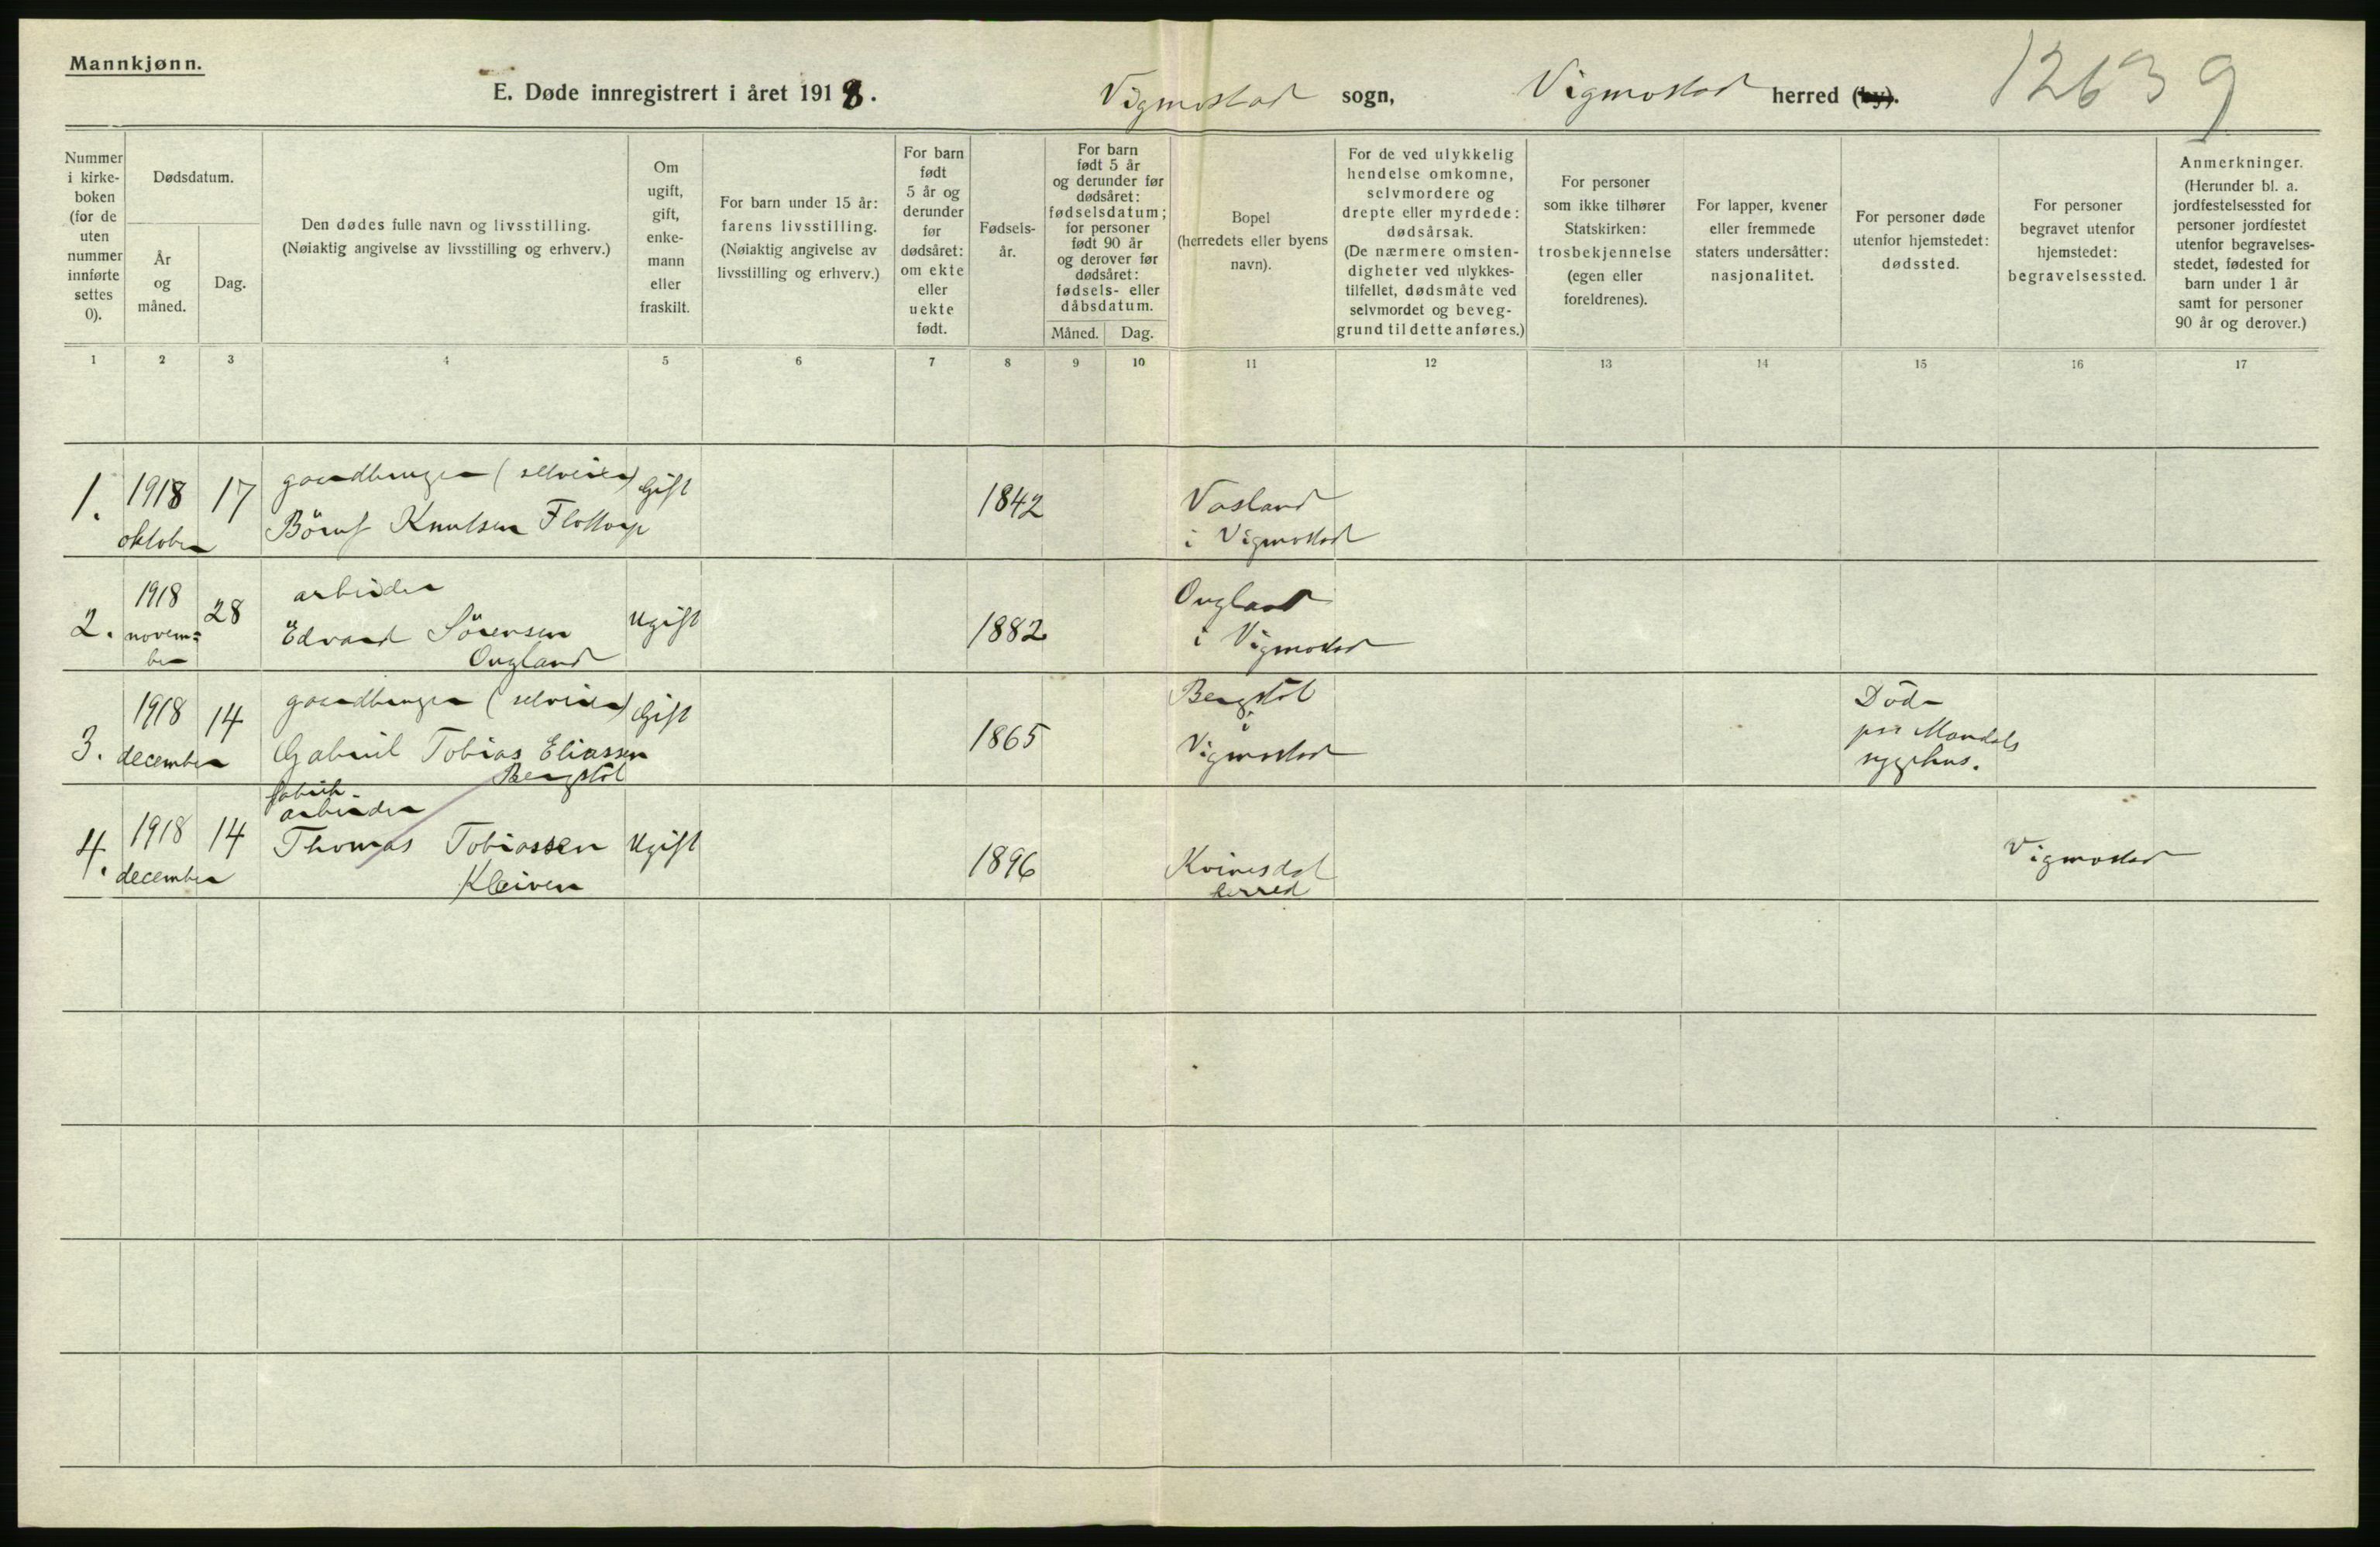 Mannkjønn.
E. Døde innregistrert i året 1918.
Vigmostad sogn,
Vigmostad herred (by).
12639
Nummer i kirke-boken (for de uten nummer innførte settes 0).
Dødsdatum.
År og måned.
Dag.
Den dødes fulle navn og livsstilling.
(Nøiaktig angivelse av livsstilling og erhverv.)
Om ugift, gift, enke-mann eller fraskilt.
For barn under 15 år: farens livsstilling.
(Nøiaktig angivelse av livsstilling og erhverv.)
For barn født 5 år og derunder før dødsåret: om ekte eller uekte født.
Fødsels-år.
For barn født 5 år og derunder før dødsåret: fødselsdatum; for personer født 90 år og derover før dødsåret: fødsels- eller dåbsdatum.
Måned. Dag.
Bopel (herredets eller byens navn).
For de ved ulykkelig hendelse omkomne, selvmordere og drepte eller myrdede: dødsårsak.
(De nærmere omsten-digheter ved ulykkes-tilfellet, dødsmåte ved selvmordet og beveg-grund til dette anføres.)
For personer som ikke tilhører Statskirken: trosbekjennelse (egen eller foreldrenes).
For lapper, kvener eller fremmede staters undersåtter: nasjonalitet.
For personer døde utenfor hjemstedet: dødssted.
For personer begravet utenfor hjemstedet: begravelsessted.
Anmerkninger.
(Herunder bl. a. jordfestelsessted for personer jordfestet utenfor begravelses-stedet, fødested for barn under 1 år samt for personer 90 år og derover.)
1 2 3 4 5 6 7 8 9 10 11 12 13 14 15 16 17
1. 1918 oktober 17
gaardbruger (selveier)
Knutsen Flottorp
Gift 1842
Vasland
i Vigmostad
2. 1918 novem=
ber 28
arbeider
Edvard Sörensen
Ougland
Ugift 1882
Ougland
i Vigmostad
3. 1918 december 14
gaardbruger (selveier)
Gabriel Tobias Eliassen
Bergstöl
Gift 1865
Bergstöl
i
Vigmostad
Död
paa Mandals
sygehus.
4. 1918 december 14
fabrik-
arbeider
Thomas Tobiassen
Kleiven
Ugift 1896
Kvinesdal
herred
Vigmostad